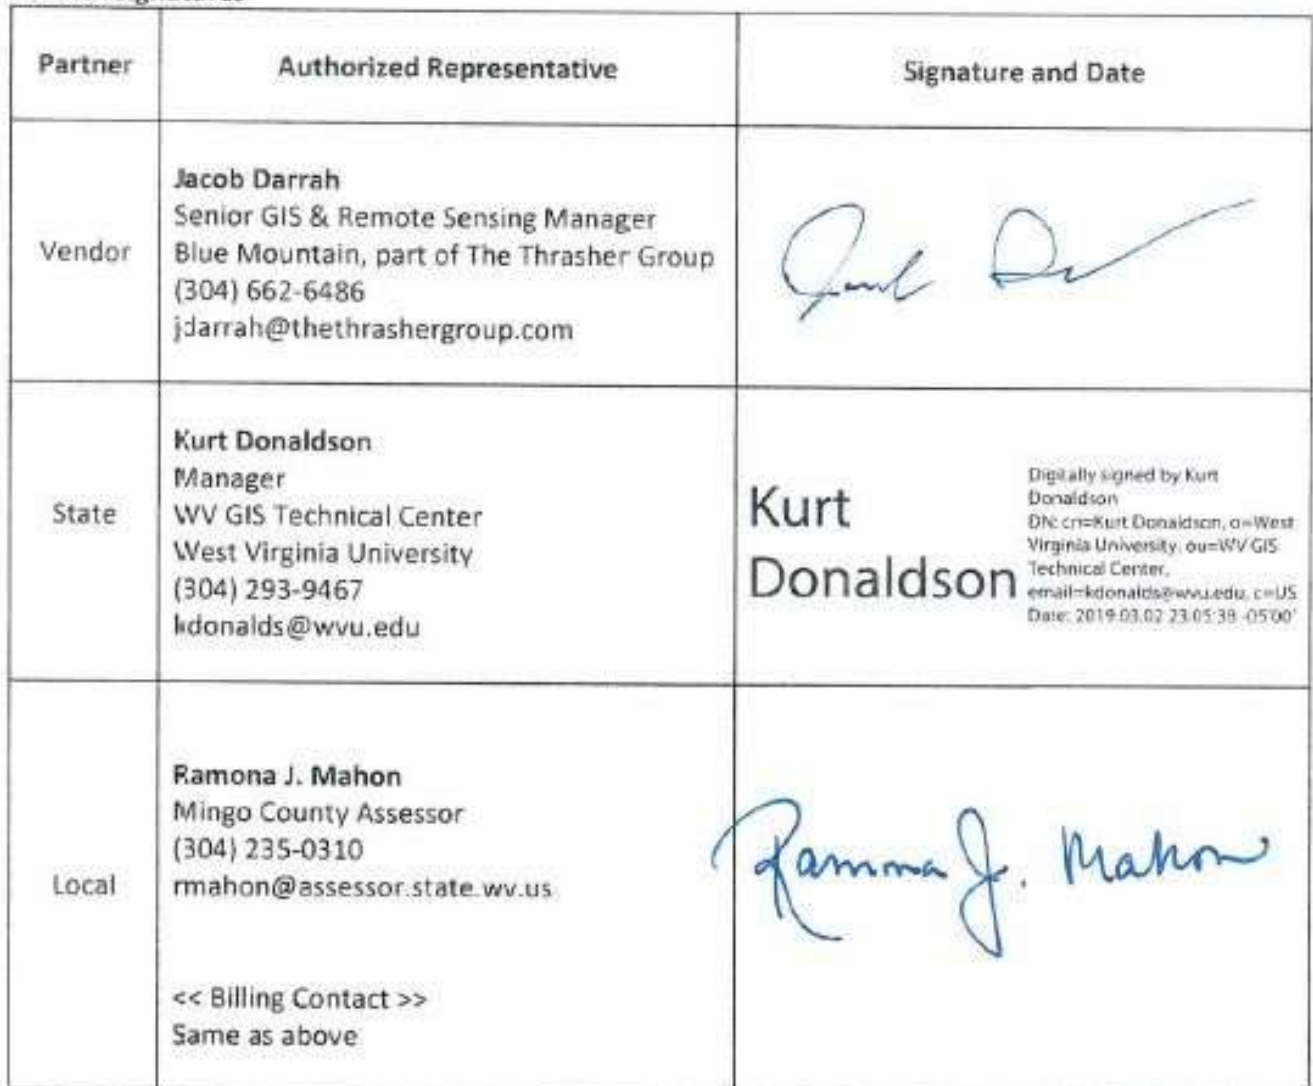 Partner
Authorized Representative
Signature and Date
Vendor
Jacob Darrah
Senior GIS & Remote Sensing Manager
Blue Mountain, part of The Thrasher Group
(304) 662-6486
jdarrah@thethrashergroup.com
State
Kurt Donaldson
Manager
WV GIS Technical Center
West Virginia University
(304) 293-9467
kdonalds@wvu.edu
Kurt
Donaldson
Digitally signed by Kurt
Donaldson
DN: cn=Kurt Donaldson, o=West
Virginia University, ou=WV GIS
Technical Center,
email=kdonalds@wvu.edu, c=US
Date: 2019.03.02 23:05:38 -05'00'
Local
Ramona J. Mahon
Mingo County Assessor
(304) 235-0310
rmahon@assessor.state.wv.us
<< Billing Contact >>
Same as above
Ramona J. Mahon